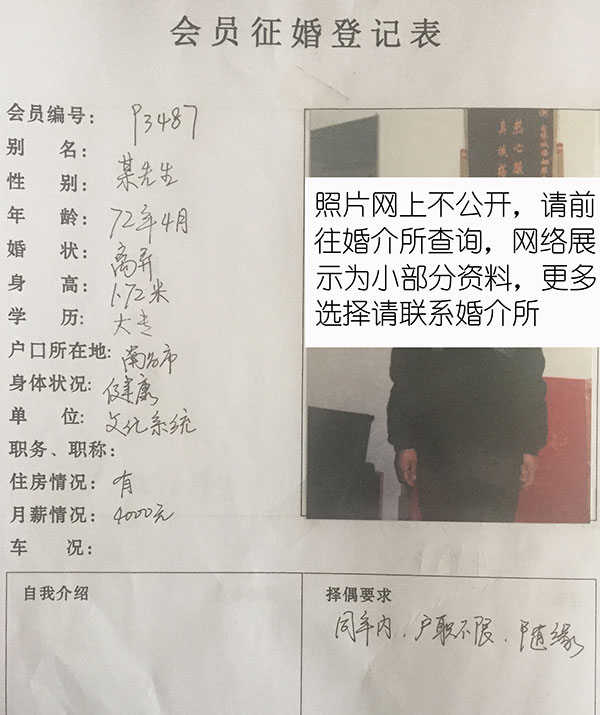 会员征婚登记表
会员编号: P3487
别 名:
性 别: 某先生
年 龄: 72年4月
婚 状: 离异
身 高: 1.72米
学 历: 大专
户口所在地: 南昌市
身体状况: 健康
单 位: 文化系统
职务、职称:
住房情况: 有
月薪情况: 4000元
车 况:
照片网上不公开，请前
往婚介所查询，网络展
示为小部分资料，更多
选择请联系婚介所
自我介绍
择偶要求
同年内、户职不限、随缘